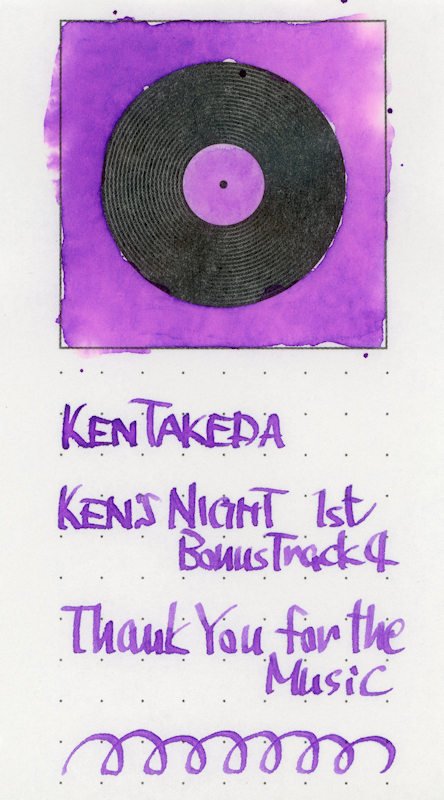 KEN TAKEDA
KEN'S NIGHT 1st
Bonus Track 4
Thank You for the
Music